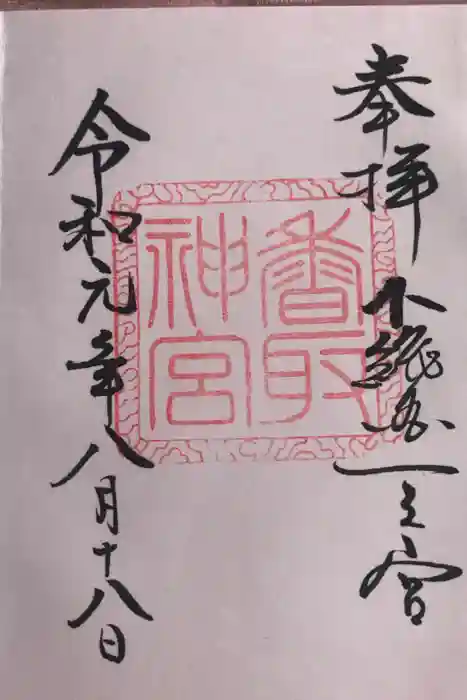 奉拝 下総国一之宮
香取
神宮
令和元年八月十八日